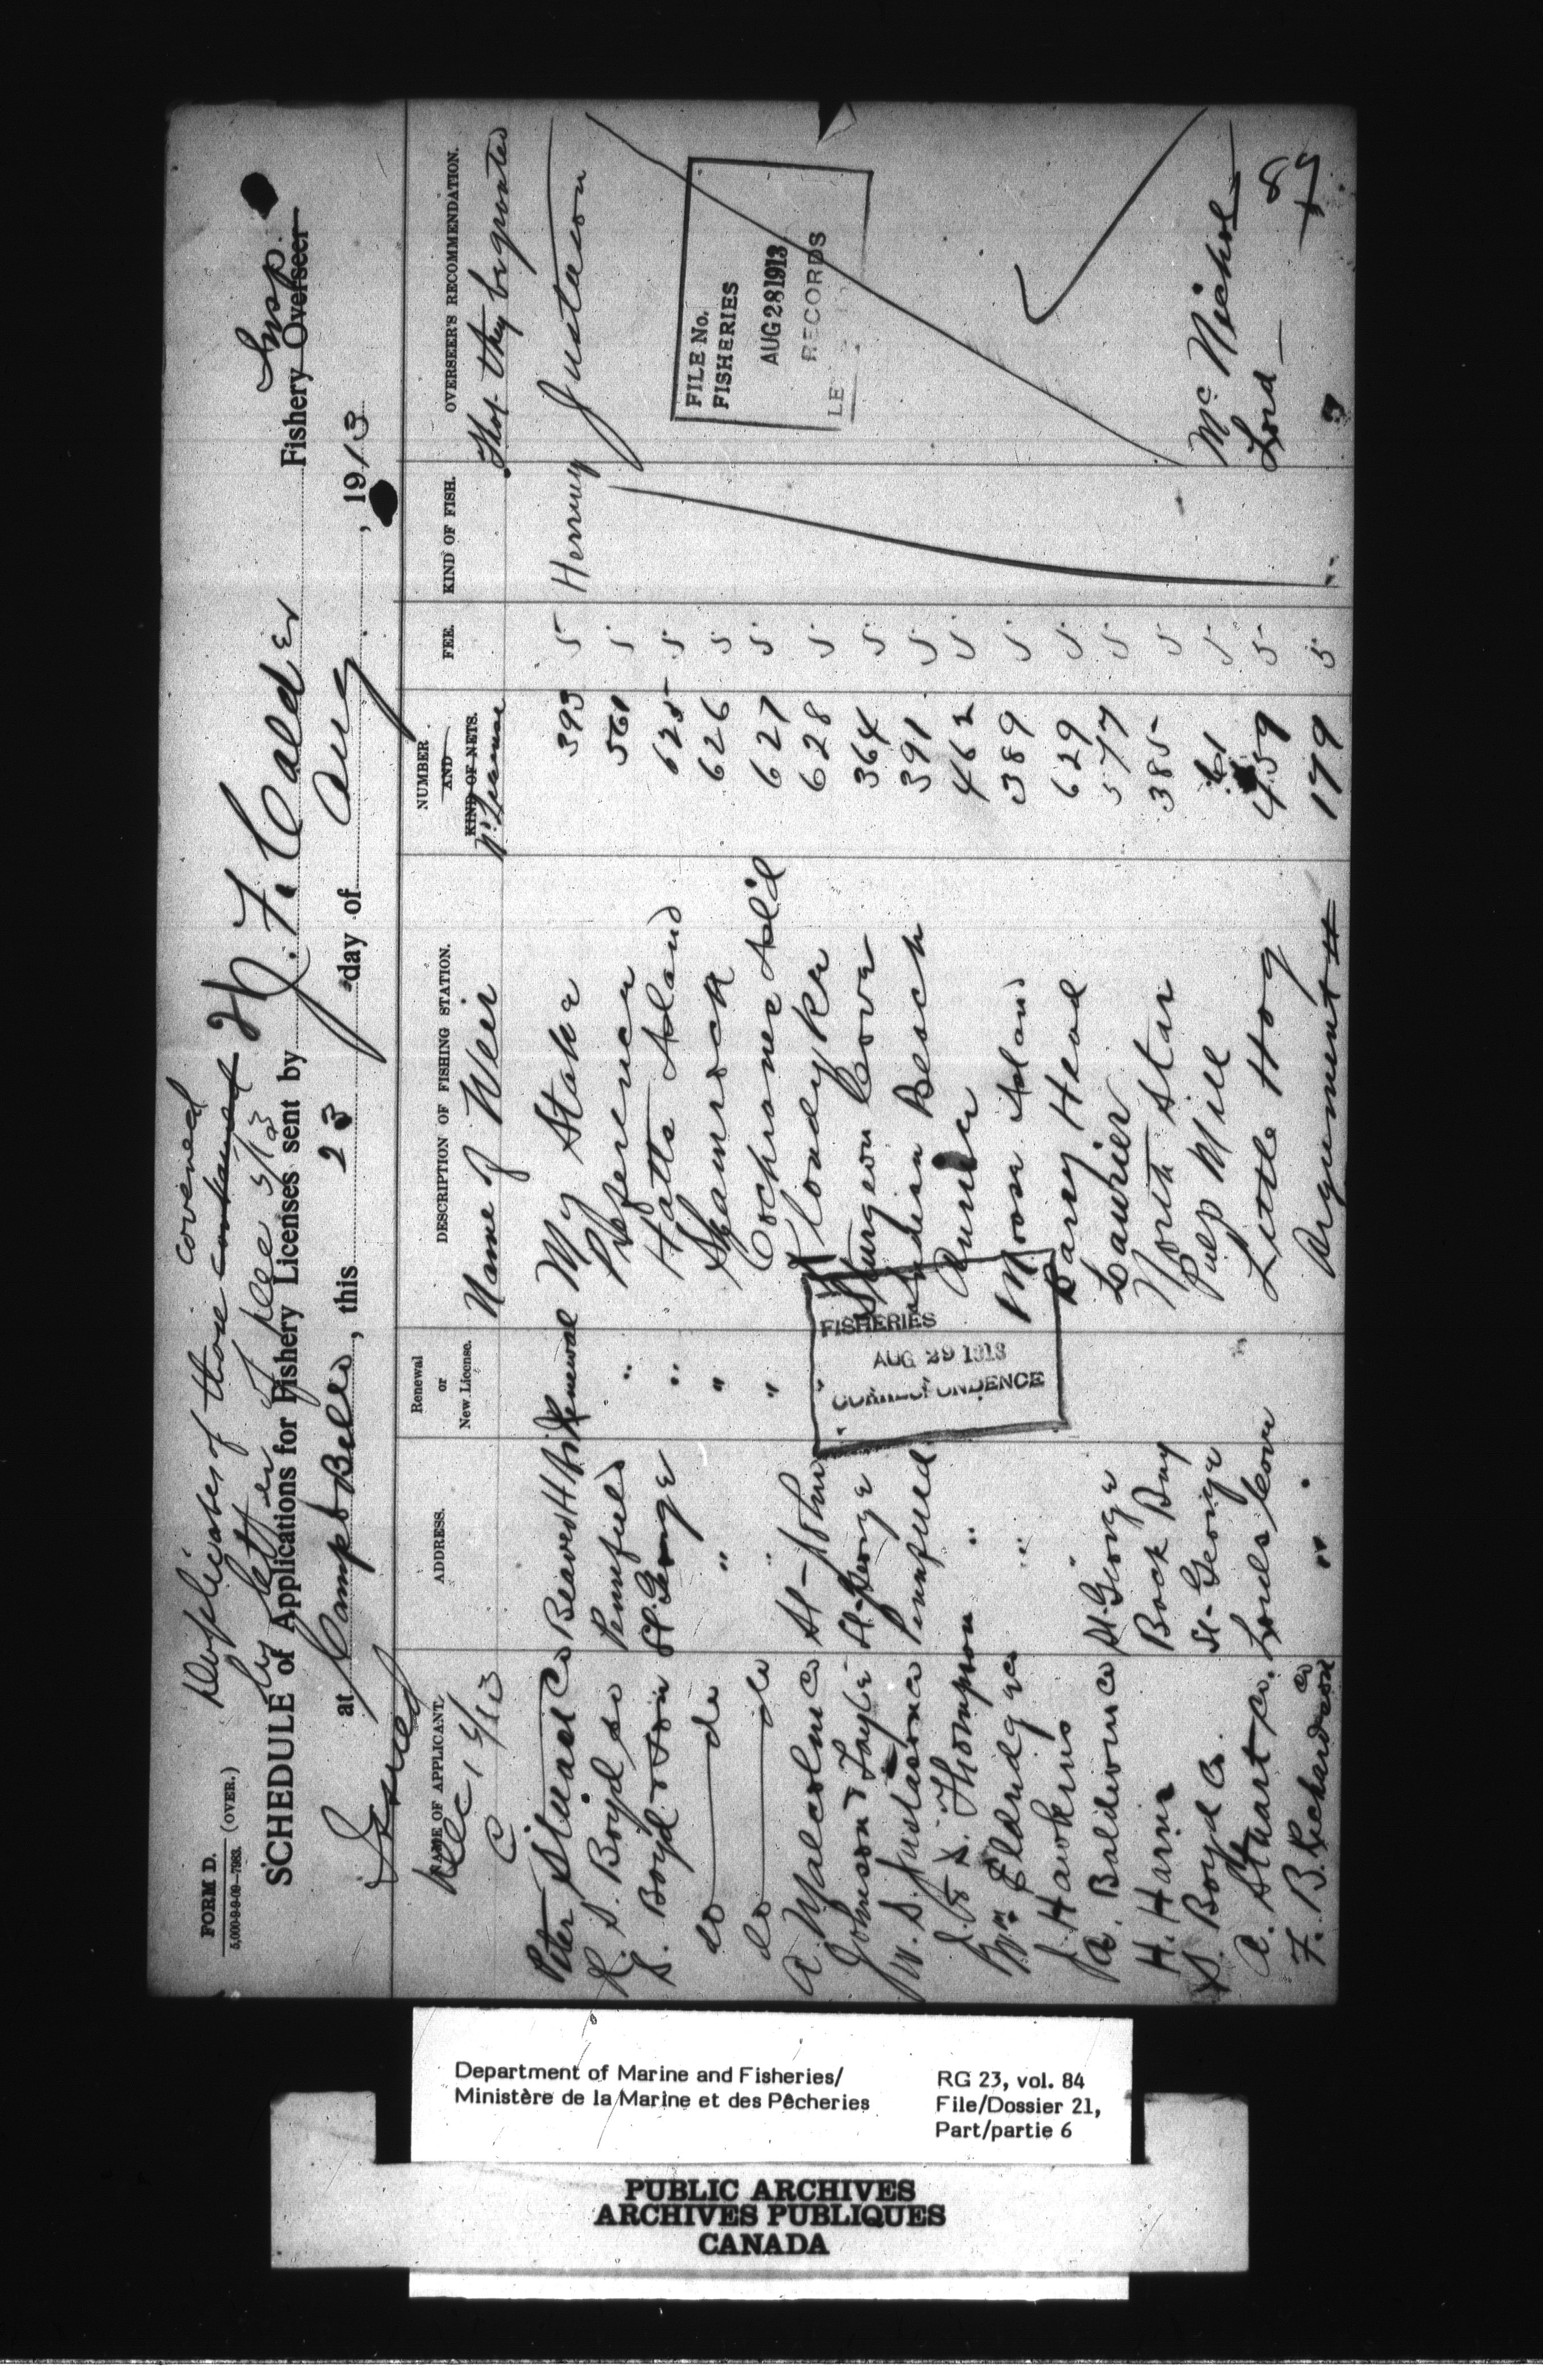 FORM D.
5,000-9-9-09-7983.
(OVER.)
Duplicates of those contained covered
by letter of Dec 5/13
SCHEDULE of Applications for Fishery Licenses sent by J. F. Calder Fishery Overseer Insp.
at Campo Bello, this 23 day of Aug, 1913
Issued
Dec 15/13
C
NAME OF APPLICANT. ADDRESS. Renewal or New License. DESCRIPTION OF FISHING STATION. NUMBER AND KIND OF NETS. FEE. KIND OF FISH. OVERSEER'S RECOMMENDATION.
Name of Weir That they be granted
Peter Stuart Co Beaver Hbr Renewal My Stake 393 5 Herring Justason
K. S. Boyd Pennfield " Preference 561 5
S. Boyd & Son St. George " Hatts Island 625 5
do do " " Shamrock 626 5
do do " " Cochranes Isl'd 627 5
A. Malcolm Co St-John " Klondyke 628 5
Johnson & Tayle St-George " Sturgeon Cove 364 5
W. S. Justason Co Pennfield Indian Beach 391 5
Thompson " 462 5
Wm Eldridge Co " Moon Island 389 5
J. Hawkins " Barry Head 629 5
A. Baldwin Co St. George Laurier 577 5
H. Harris Back Bay North Star 385 5
S. Boyd Co. St-George Pulp Mill 61 5 McNichol
A. Stuart Co. Lords Cove Little Hog 459 5 Lord
F. B. Richardson Co " " Argument 179 5 "
FILE No.
FISHERIES
AUG 28 1913
RECORDS
LE
FISHERIES
AUG 29 1913
CORRESPONDENCE
87
Department of Marine and Fisheries/
Ministère de la Marine et des Pêcheries
RG 23, vol. 84
File/Dossier 21,
Part/partie 6
PUBLIC ARCHIVES
ARCHIVES PUBLIQUES
CANADA